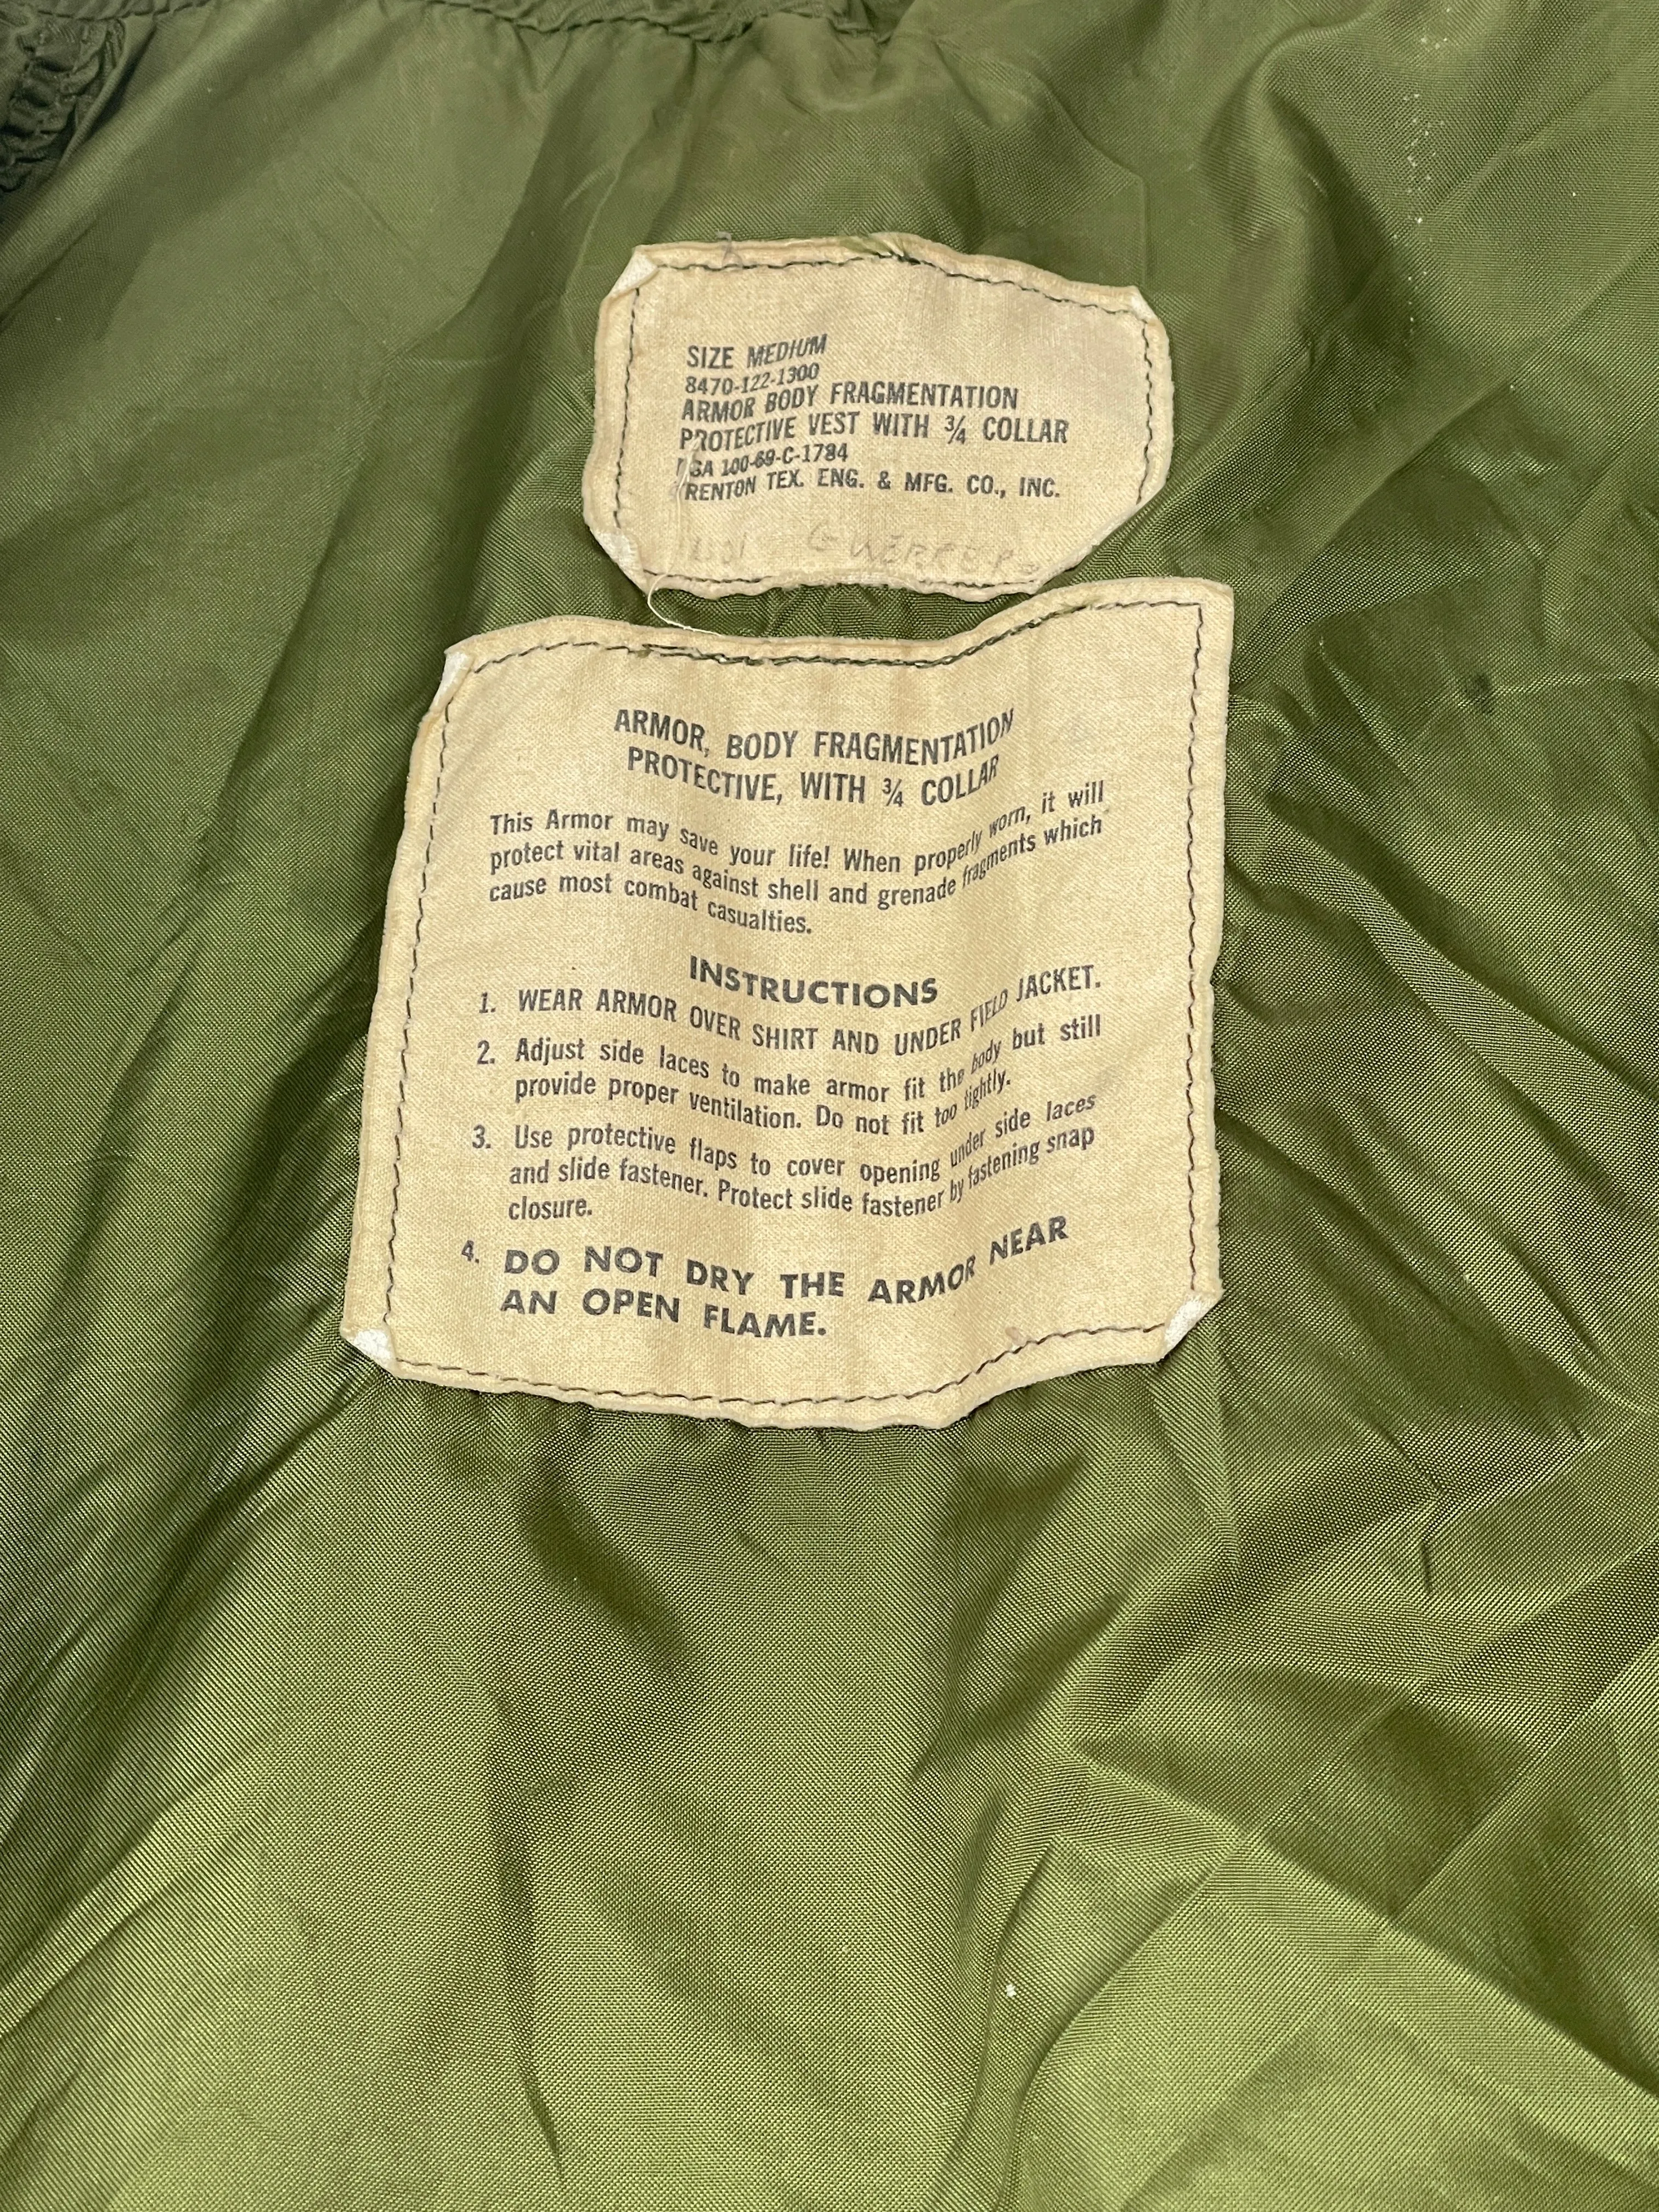 SIZE MEDIUM
8470-122-1300
ARMOR BODY FRAGMENTATION
PROTECTIVE VEST WITH ¾ COLLAR
DSA 100-69-C-1784
TRENTON TEX. ENG. & MFG. CO., INC.
GUERRERO
ARMOR, BODY FRAGMENTATION
PROTECTIVE, WITH ¾ COLLAR
This Armor may save your life! When properly worn, it will
protect vital areas against shell and grenade fragments which
cause most combat casualties.
INSTRUCTIONS
1. WEAR ARMOR OVER SHIRT AND UNDER FIELD JACKET.
2. Adjust side laces to make armor fit the body but still
provide proper ventilation. Do not fit too tightly.
3. Use protective flaps to cover opening under side laces
and slide fastener. Protect slide fastener by fastening snap
closure.
4. DO NOT DRY THE ARMOR NEAR
AN OPEN FLAME.